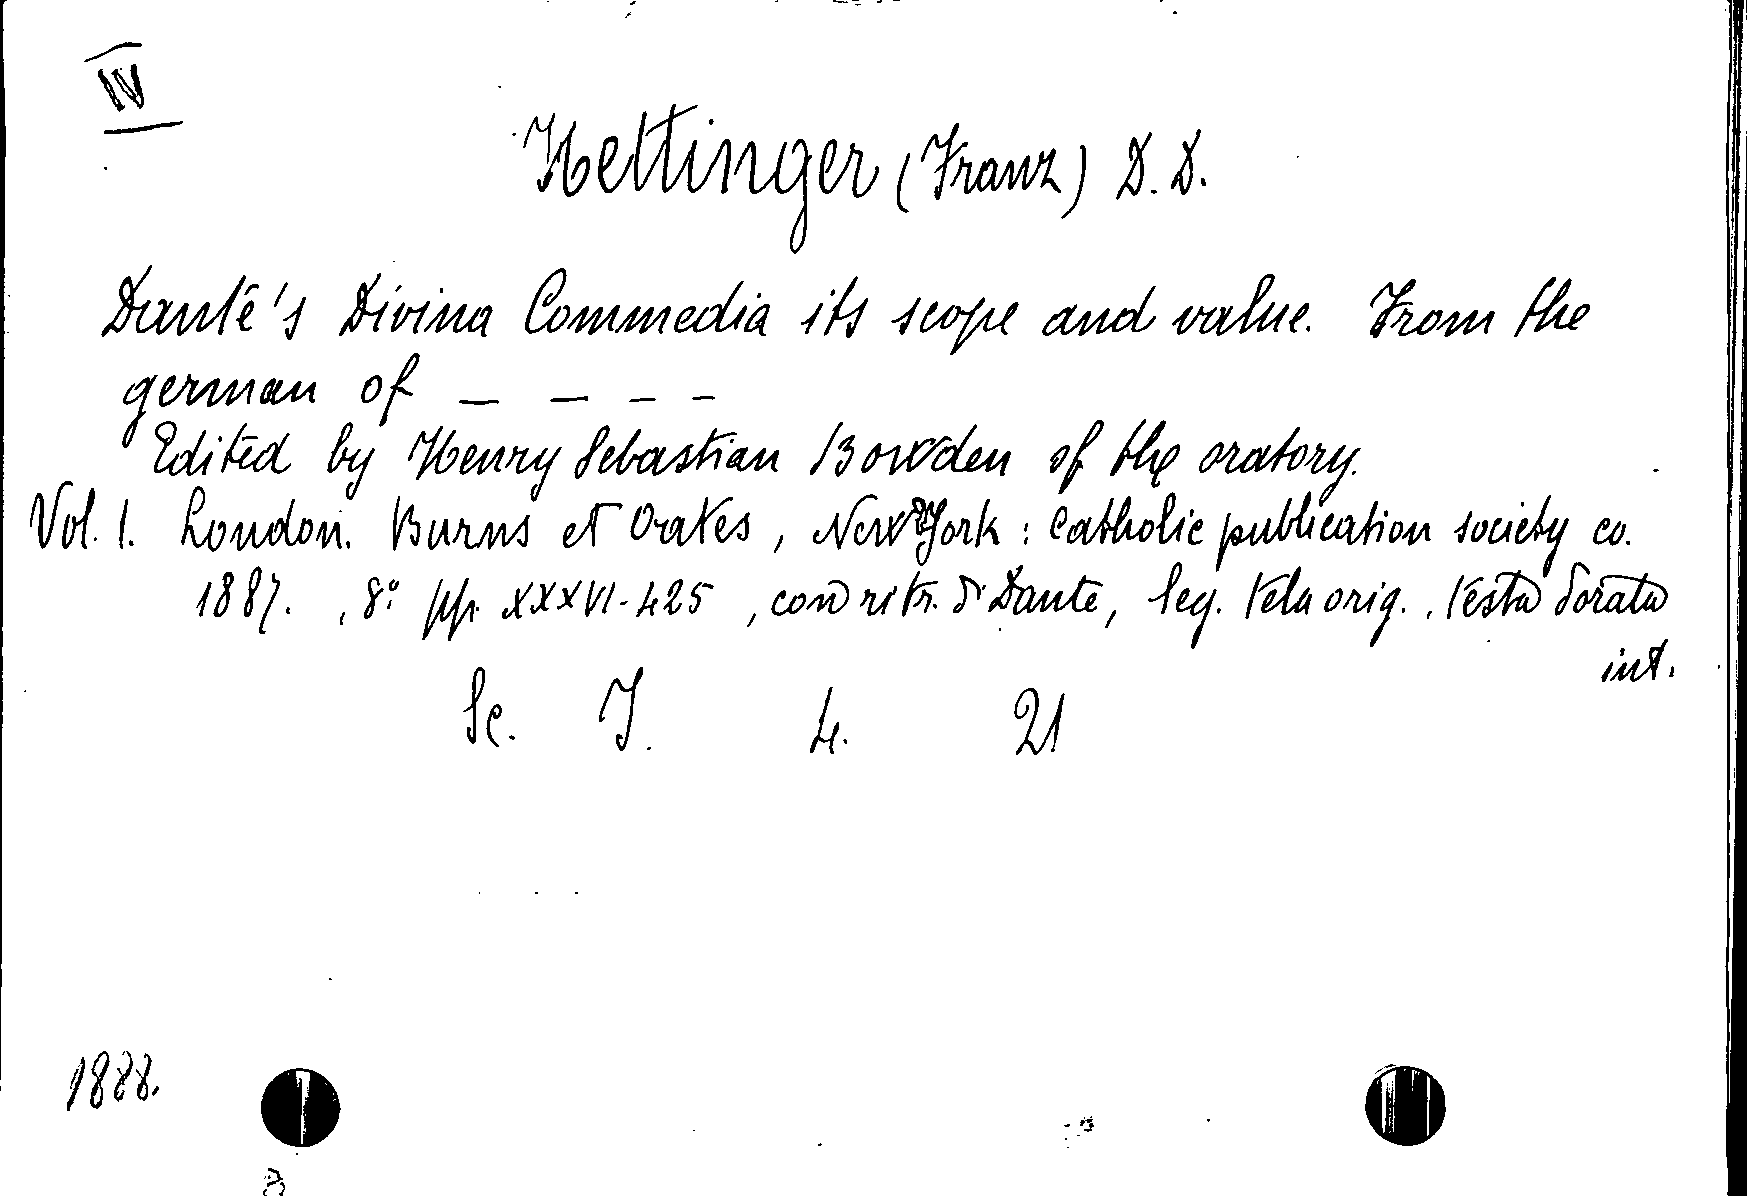 IV
Hettinger (Franz) D. D.
Dante's Divina Commedia its scope and value. From the
german of _ _ _ _
Edited by Henry Sebastian Bowden of the oratory.
Vol. 1. London. Burns et Oates, New York: Catholic publication society co.
1887. , 8° pp. XXXVI-425, con ritr. di Dante, leg. tela orig., testa dorata
int.
Sc. I. 4. 21
1888.